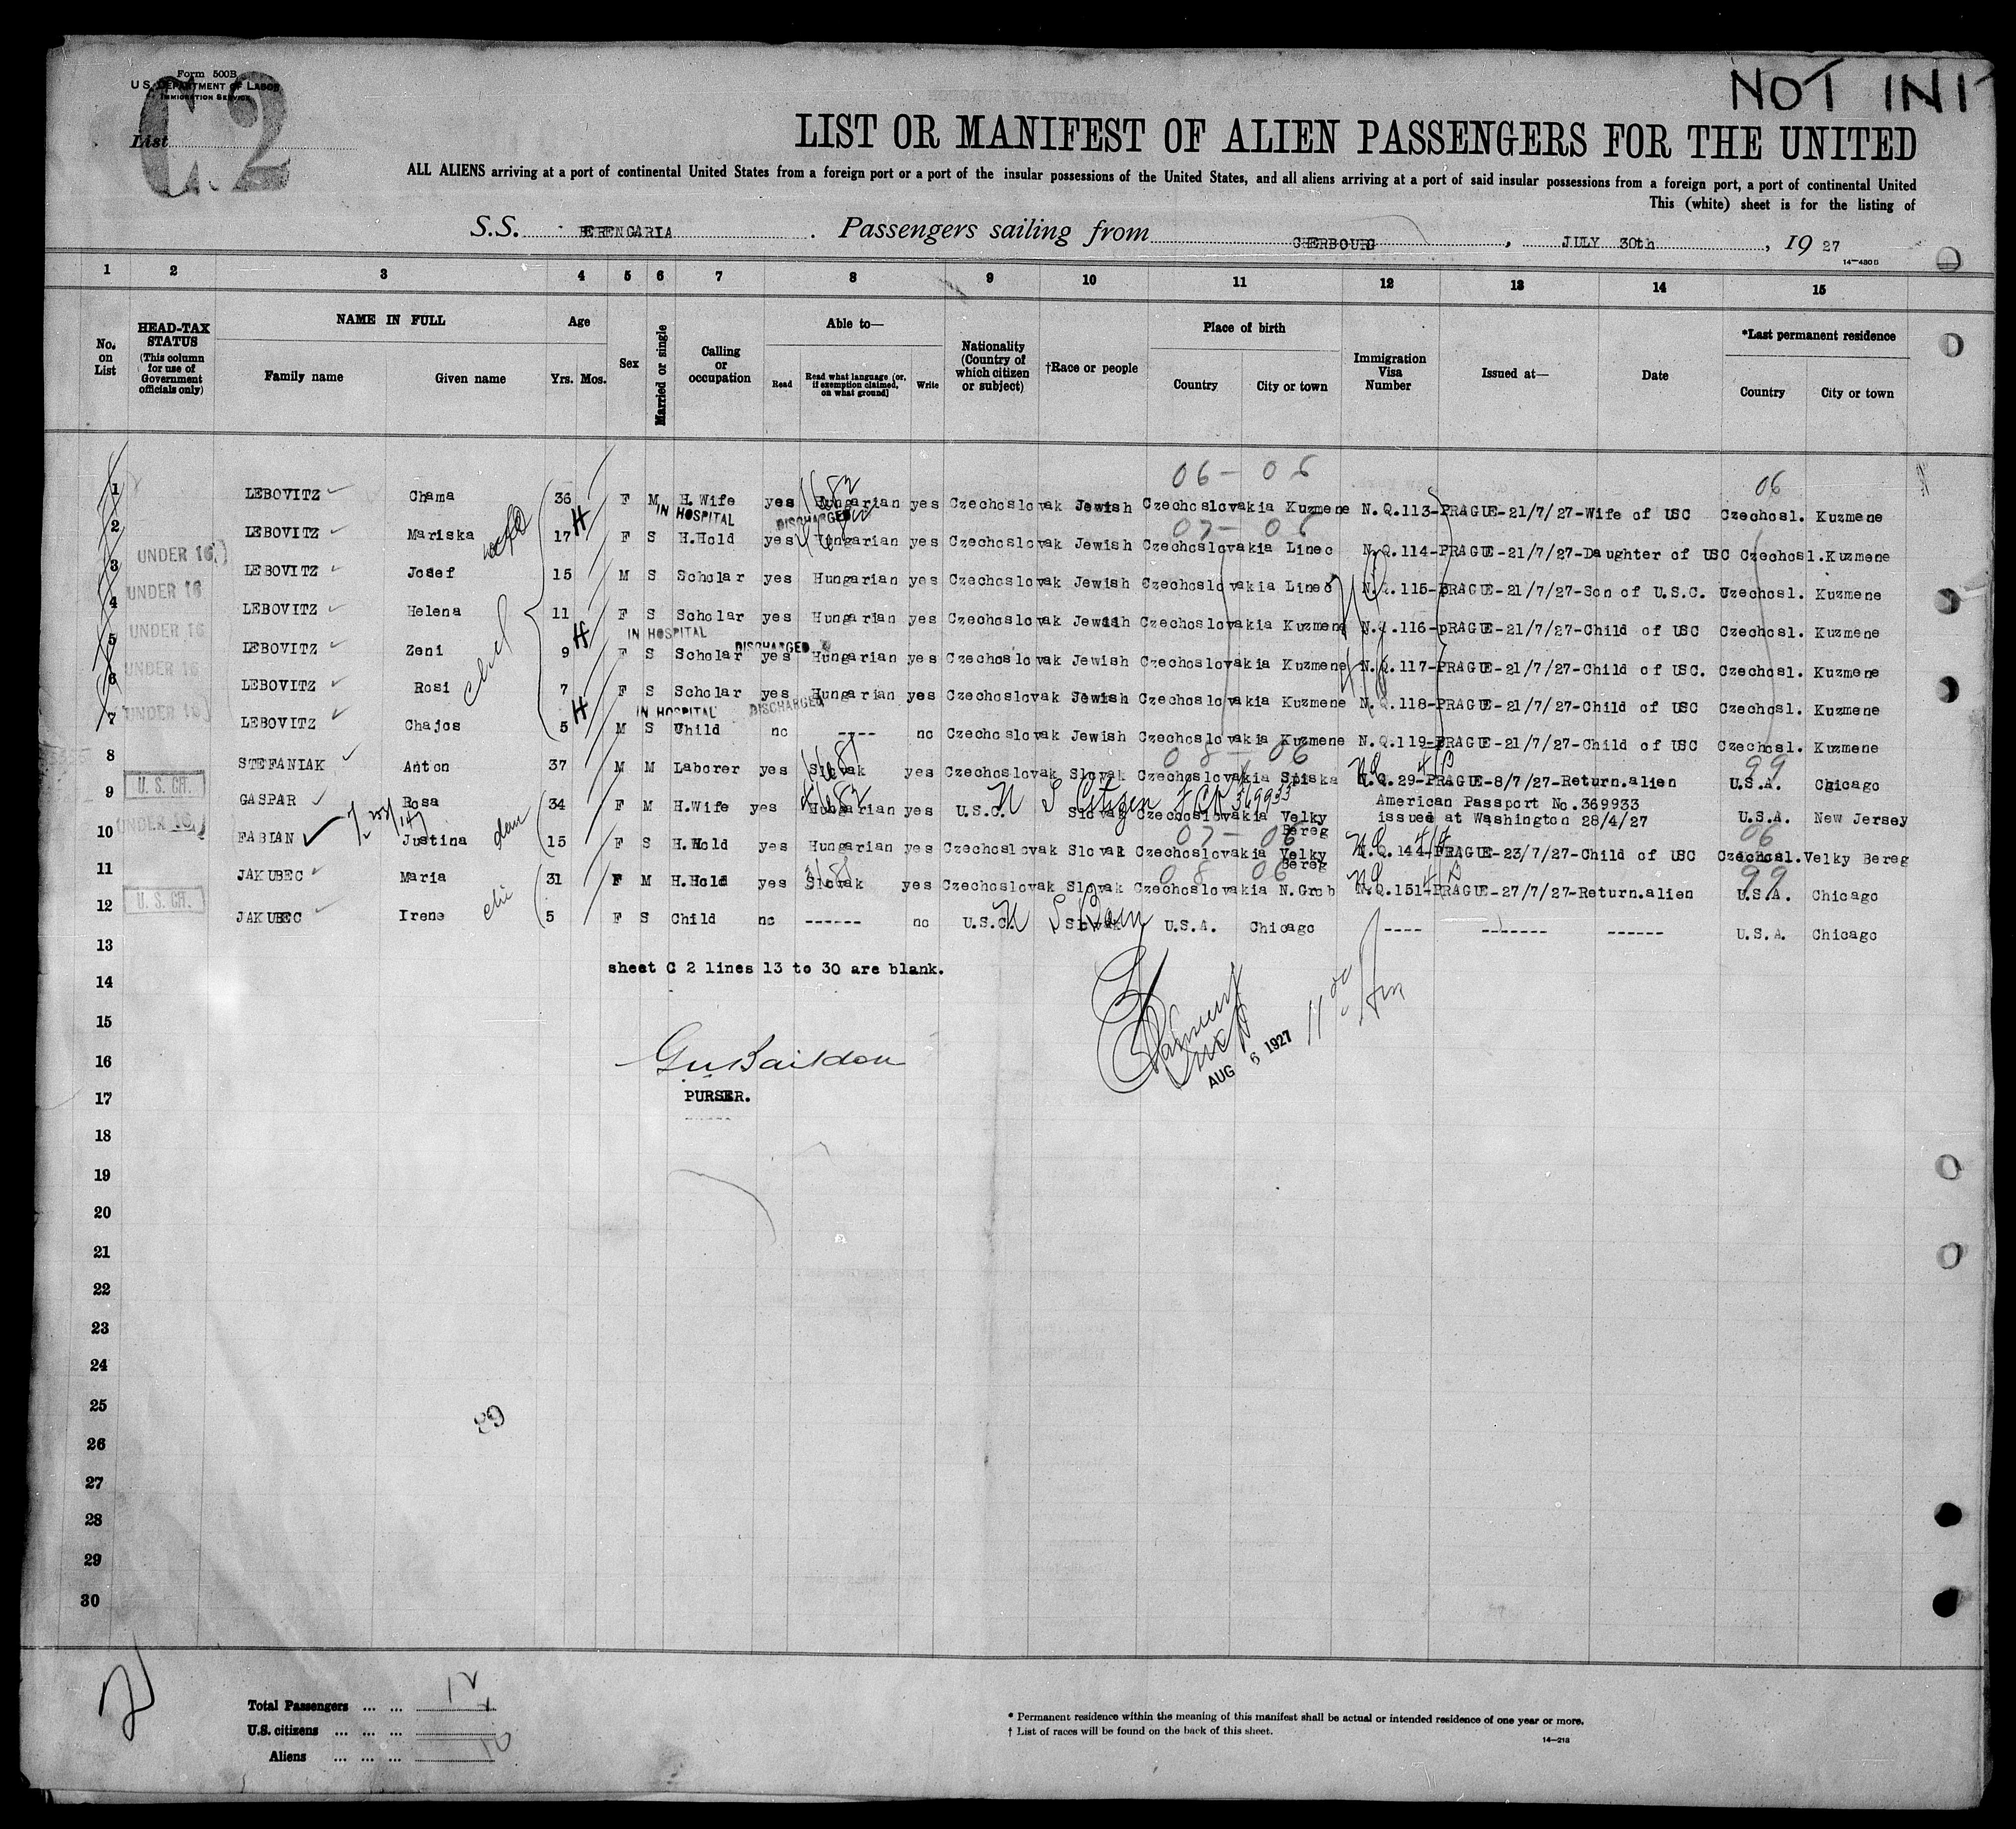 Form 500B
U. S. DEPARTMENT OF LABOR
IMMIGRATION SERVICE
C 2
List
NOT INI
LIST OR MANIFEST OF ALIEN PASSENGERS FOR THE UNITED
ALL ALIENS arriving at a port of continental United States from a foreign port or a port of the insular possessions of the United States, and all aliens arriving at a port of said insular possessions from a foreign port, a port of continental United
This (white) sheet is for the listing of
S.S. BERENGARIA. Passengers sailing from CHERBOURG, JULY 30th, 19 27
14-480B
1 2 3 4 5 6 7 8 9 10 11 12 13 14 15
No. on List
HEAD-TAX STATUS (This column for use of Government officials only)
NAME IN FULL
Family name Given name
Age
Yrs. Mos.
Sex
Married or single
Calling or occupation
Able to—
Read Read what language (or, if exemption claimed, on what ground) Write
Nationality (Country of which citizen or subject)
†Race or people
Place of birth
Country City or town
Immigration Visa Number
Issued at—
Date
*Last permanent residence
Country City or town
06 - 06 06
1 LEBOVITZ Chama 36 F M H. Wife yes Hungarian yes Czechoslovak Jewish Czechoslovakia Kuzmene N.Q.113-PRAGUE-21/7/27-Wife of USC Czechosl. Kuzmene
IN HOSPITAL DISCHARGED
07 - 06
2 LEBOVITZ Mariska 17 H F S H.Hold yes Hungarian yes Czechoslovak Jewish Czechoslovakia Linec N.Q.114-PRAGUE-21/7/27-Daughter of USC Czechosl. Kuzmene
UNDER 16
3 LEBOVITZ Josef 15 M S Scholar yes Hungarian yes Czechoslovak Jewish Czechoslovakia Linec N.Q.115-PRAGUE-21/7/27-Son of U.S.C. Czechosl. Kuzmene
UNDER 16
4 LEBOVITZ Helena 11 F S Scholar yes Hungarian yes Czechoslovak Jewish Czechoslovakia Kuzmene N.Q.116-pRAGUE-21/7/27-Child of USC Czechosl. Kuzmene
UNDER 16 IN HOSPITAL DISCHARGED
5 LEBOVITZ Zeni 9 H F S Scholar yes Hungarian yes Czechoslovak Jewish Czechoslovakia Kuzmene N.Q.117-PRAGUE-21/7/27-Child of USC. Czechosl. Kuzmene
UNDER 16
6 LEBOVITZ Rosi 7 F S Scholar yes Hungarian yes Czechoslovak Jewish Czechoslovakia Kuzmene N.Q.118-PRAGUE-21/7/27-Child of USC Czechosl. Kuzmene
UNDER 16 IN HOSPITAL DISCHARGED
7 LEBOVITZ Chajos 5 H M S Child no ---- no Czechoslovak Jewish Czechoslovakia Kuzmene N.Q.119-PRAGUE-21/7/27-Child of USC Czechosl. Kuzmene
08 - 06 99
8 STEFANIAK Anton 37 M M Laborer yes Slovak yes Czechoslovak Slovak Czechoslovakia Spiska N.Q.29-PRAGUE-8/7/27-Return.alien U.S.A. Chicago
U. S. CH.
9 GASPAR Rosa 34 F M H.Wife yes Hungarian yes U.S.C. Slovak Czechoslovakia Velky Bereg American Passport No.369933 issued at Washington 28/4/27 U.S.A. New Jersey
U S Citizen 369933
UNDER 16 07 - 06 06
10 FABIAN Justina 15 F S H.Hold yes Hungarian yes Czechoslovak Slovak Czechoslovakia Velky Bereg N.Q.144-PRAGUE-23/7/27-Child of USC Czechosl. Velky Bereg
08 06 99
11 JAKUBEC Maria 31 F M H.Hold yes Slovak yes Czechoslovak Slovak Czechoslovakia N.Grob N.Q.151-PRAGUE-27/7/27-Return.alien U.S.A. Chicago
U. S. CH.
12 JAKUBEC Irene 5 F S Child no ------ no U.S.C. Slovak U.S.A. Chicago ---- ------- ------ U.S.A. Chicago
U S Born
13
sheet C 2 lines 13 to 30 are blank.
14
15
AUG 6 1927
16
PURSER.
17
18
19
20
21
22
23
24
25
89
26
27
28
29
30
2
Total Passengers ... ... 12
U.S. citizens ... ... ... 2
Aliens ... ... ... 10
* Permanent residence within the meaning of this manifest shall be actual or intended residence of one year or more.
† List of races will be found on the back of this sheet.
14-218